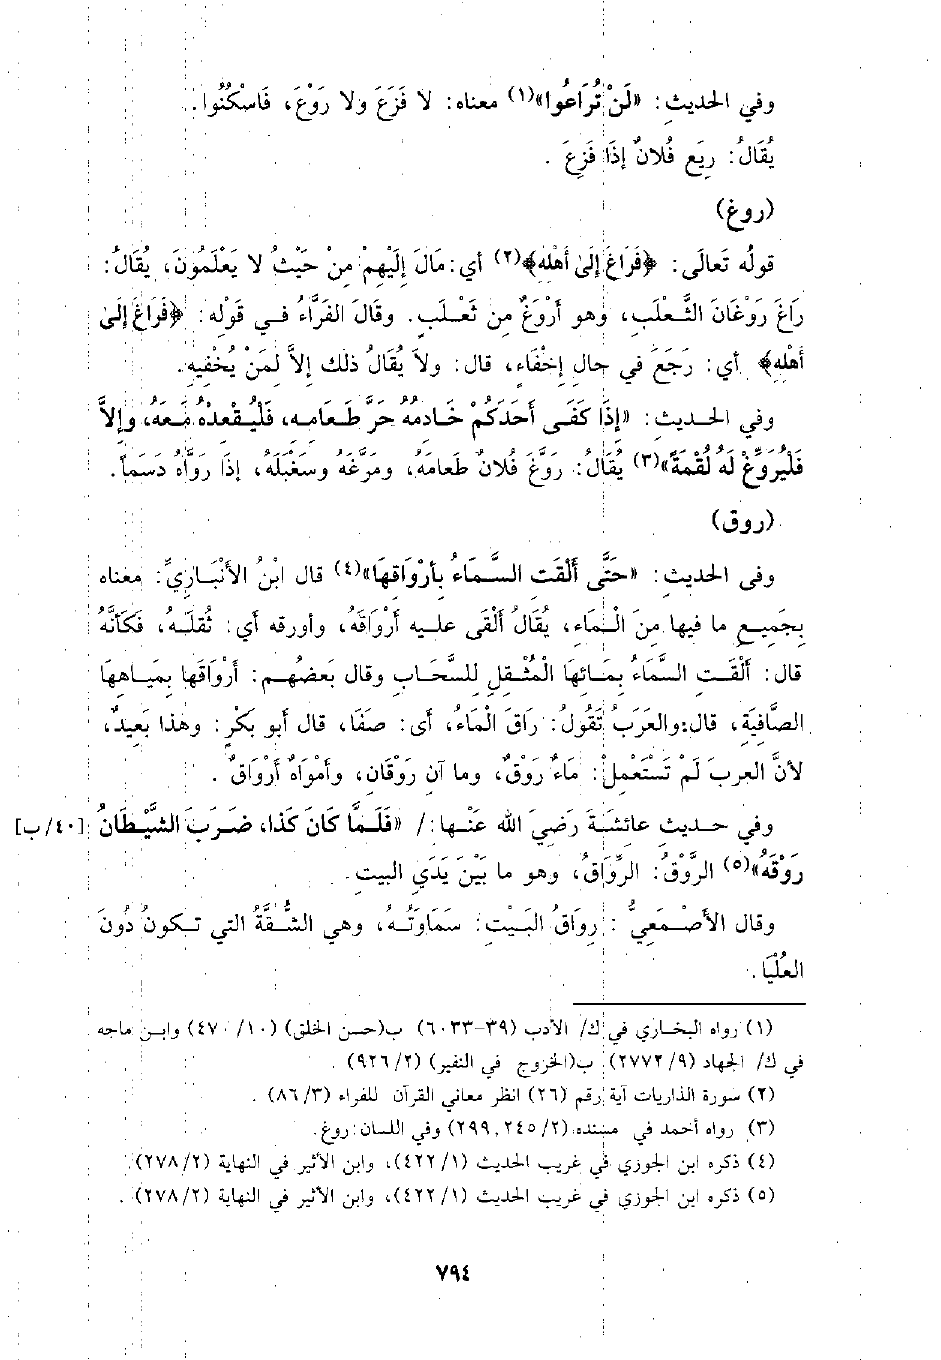 وفي الحديث: «لَنْ تُرَاعُوا»(١) معناه: لا فَزَعَ ولا رَوْعَ، فَاسْكُنُوا.
يُقَالُ: رِيَع فُلانٌ إذَا فَزِعَ.
(روغ)
قولُه تَعالَى: ﴿فَرَاغَ إلَىٰ أهْلِه﴾(٢) أي: مَالَ إلَيْهِمْ مِنْ حَيْثُ لا يَعْلَمُونَ، يقَالُ:
رَاغَ رَوْغَانَ الثَّعْلَبِ، وهو أَرْوَغُ من ثَعْلَبٍ. وقَالَ الفَرَّاءُ في قَوْلِه: ﴿فَرَاغَ إلَىٰ
أهْلِه﴾ أي: رَجَعَ في حالِ إخْفَاءٍ، قال: ولاَ يُقَالُ ذلك إلاَّ لِمَنْ يُخْفِيهِ.
وفي الحديث: «إذَا كَفَى أحَدَكُمْ خَادمُهُ حَرَّ طَعَامِه، فَلْيُقْعِدْهُ مَعَهُ، وإلاَّ
فَلْيُرَوِّغْ لَهُ لُقْمَةً»(٣) يُقَالُ: رَوَّغَ فُلانٌ طَعَامَهُ، ومَرَّغَهُ وسَغْبَلَهُ، إذَا رَوَّاهُ دَسَماً.
(روق)
وفي الحديث: «حَتَّى أَلْقَتِ السَّمَاءُ بأَرْوَاقِهَا»(٤) قال ابنُ الأَنْبَارِيِّ: معناه
بِجَمِيعِ ما فيها مِنَ الْمَاءِ، يُقَالُ أَلْقَى عليه أَرْوَاقَهُ، وأورقه أي: ثُقلَهُ، فَكَأنَّهُ
قال: أَلْقَتِ السَّمَاءُ بِمَائِهَا الْمُثْقِلِ لِلسَّحَابِ وقال بَعضُهم: أَرْوَاقَها بِمَياهِهَا
الصَّافِيَةِ، قال: والعَرَبُ تَقُولُ: رَاقَ الْمَاءُ، أي: صَفَا، قال أبو بَكْرٍ: وهذا بَعِيدٌ،
لأنَّ العربَ لَمْ تَسْتَعْمِلْ: مَاءٌ رَوْقٌ، وما آن رَوْقَان، وأَمْوَاهٌ أَرْوَاقٌ.
وفي حديث عائشة رَضِيَ الله عَنْها: / «فَلَمَّا كَانَ كَذَا، ضَرَبَ الشَّيْطَانُ [٤٠/ب]
رَوْقَهُ»(٥) الرَّوْقُ: الرِّوَاقُ، وهو ما بَيْنَ يَدَيِ البيتِ.
وقال الأَصْمَعِيُّ: رِوَاقُ البَيْتِ: سَمَاوَتُهُ، وهي الشُّقَّةُ التي تكونُ دُونَ
العُلْيَا.
(١) رواه البخاري في ك/ الأدب (٣٩-٦٠٣٣) ب(حسن الخلق) (١٠/ ٤٧٠) وابن ماجه
في ك/ الجهاد (٩/ ٢٧٧٢) ب(الخروج في النفير) (٢/ ٩٢٦).
(٢) سورة الذاريات آية رقم (٢٦) انظر معاني القرآن للفراء (٣/ ٨٦).
(٣) رواه أحمد في مسنده (٢/ ٢٤٥، ٢٩٩) وفي اللسان: روغ.
(٤) ذكره ابن الجوزي في غريب الحديث (١/ ٤٢٢)، وابن الأثير في النهاية (٢/ ٢٧٨).
(٥) ذكره ابن الجوزي في غريب الحديث (١/ ٤٢٢)، وابن الأثير في النهاية (٢/ ٢٧٨).
٧٩٤